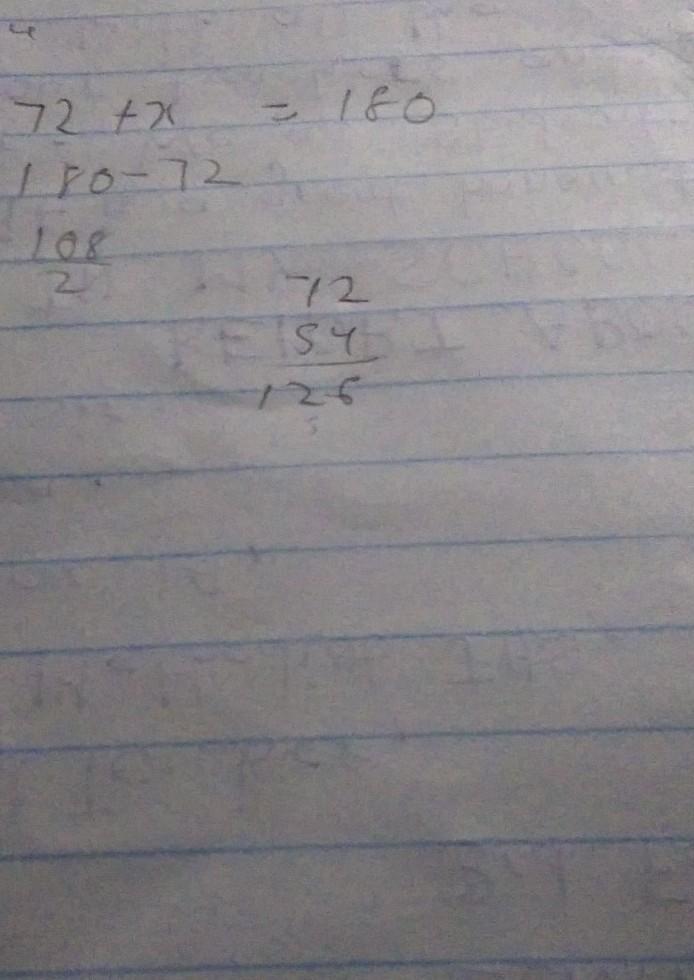 72 + x = 180
180 - 72
108
2
72
54
126